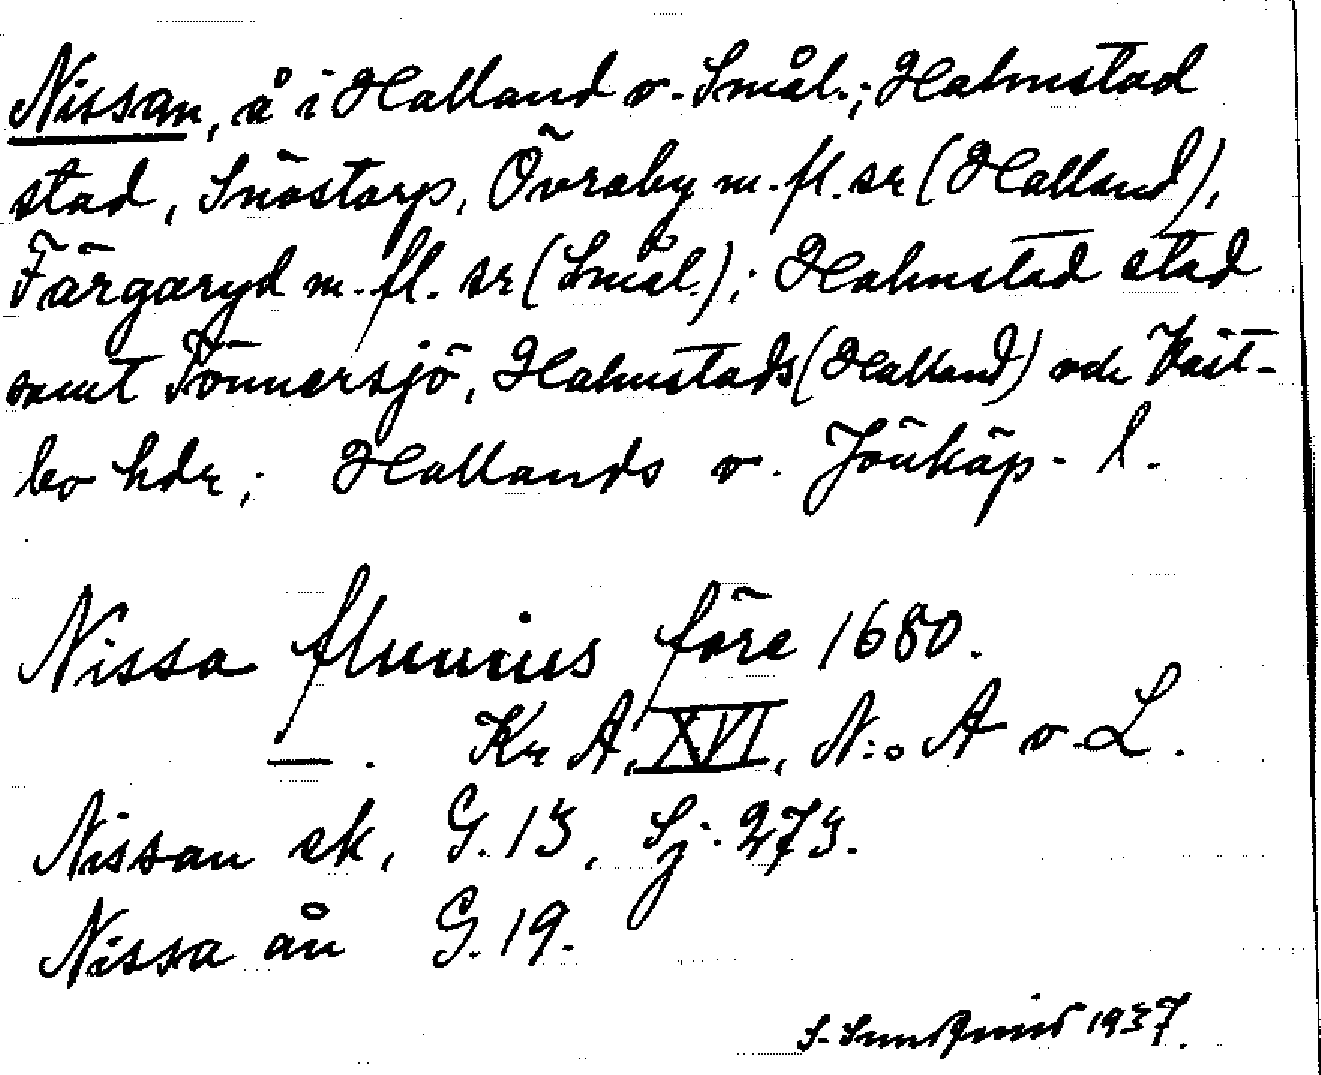 Nissan, å i Halland o. Smål.; Halmstad
stad, Snöstorp, Övraby m. fl. sr (Halland),
Färgaryd m. fl. sr (Smål.); Halmstad stad
samt Tönnersjö, Halmstads (Halland) och Väst-
bo hdr; Hallands o. Jönköp. l.
Nissa fluvius före 1680.
—. Kr A, XVI, N:o A o L.
Nissan ek. G. 13, Sj. 273.
Nissa ån G. 19.
S. 1937.